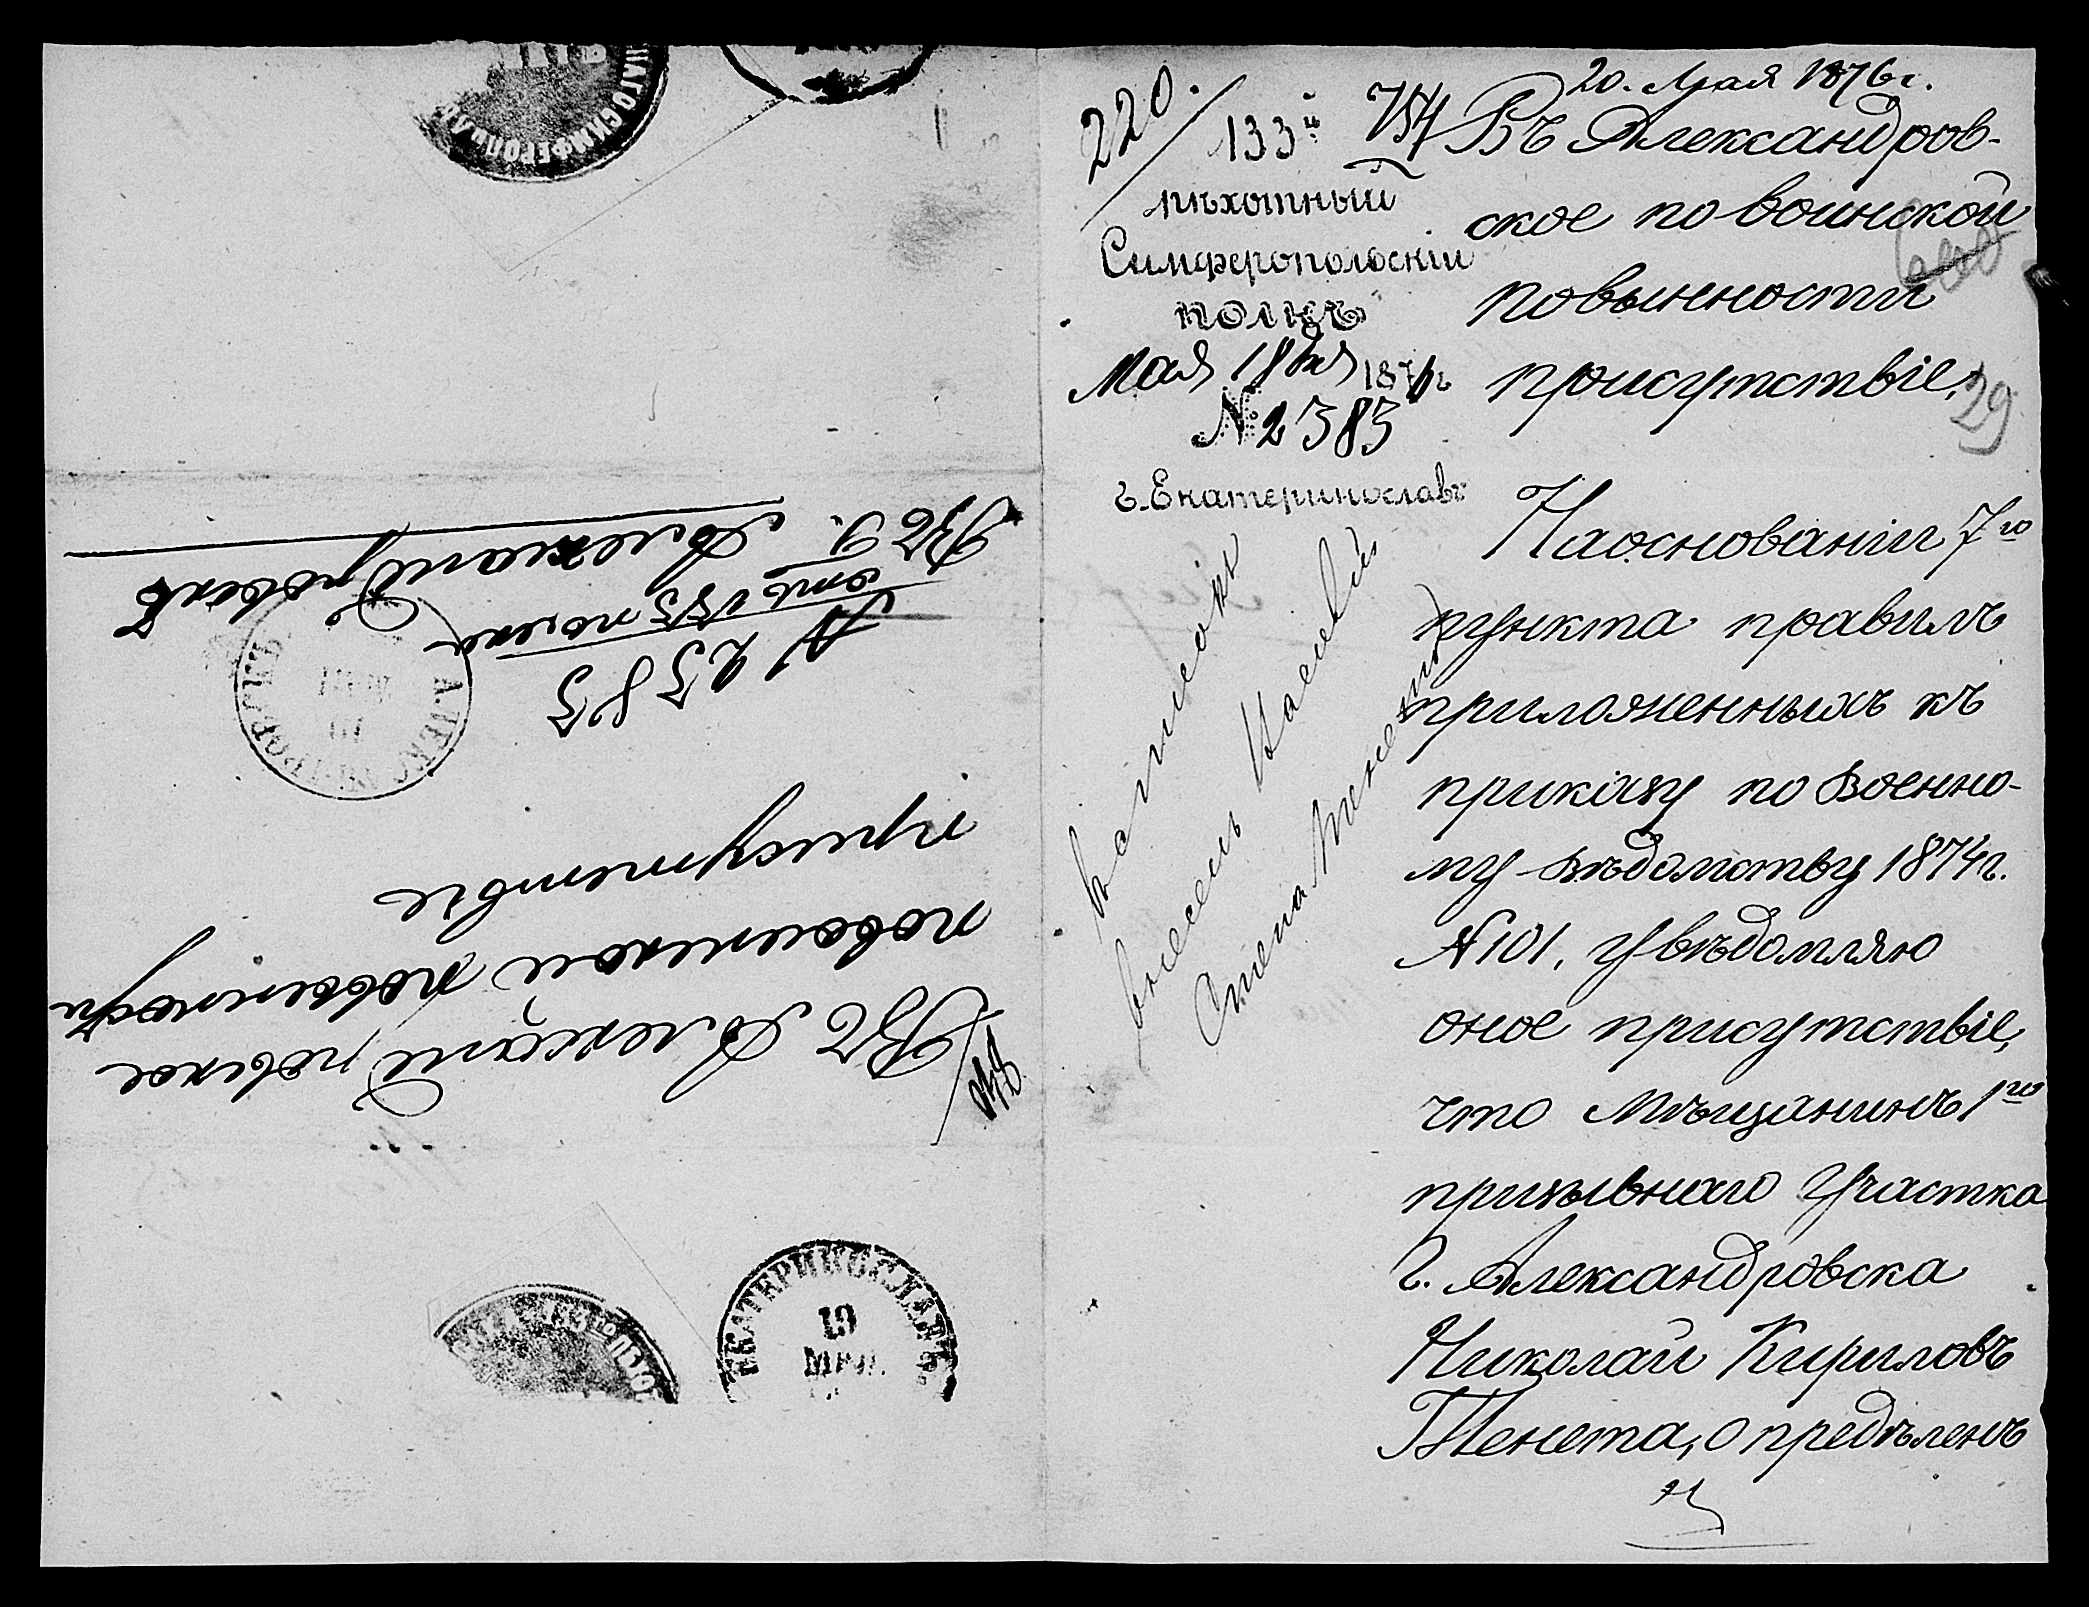 20. Мая 1876 г.
220.
133й
пѣхотный
Симферопольскій
полкъ
Мая 18 дня 1876 г.
№ 2383
г. Екатеринославъ
Въ Александров-
ское по воинской
повынности
присутствіе,
29
На основаніи 7го
пункта правилъ
приложенныхъ къ
приказу по Военно-
му Вѣдомству 1874 г.
№ 101, увѣдомляю
оное присутствіе,
что мѣщанинъ 1го
призывнаго участка
г. Александровска
Николай Кириловъ
Тенета, опредѣленъ
внесенъ
Въ Александровское
повоинской повинности
присутствіе
№ 2383
отъ 133 полка
Въ г. Александровскъ
АЛЕКСАНДРОВСКЪ
ЕКАТЕРИНОСЛАВЪ
19
МАЯ
133го ПѢХОТ
СИМФЕРОПОЛ